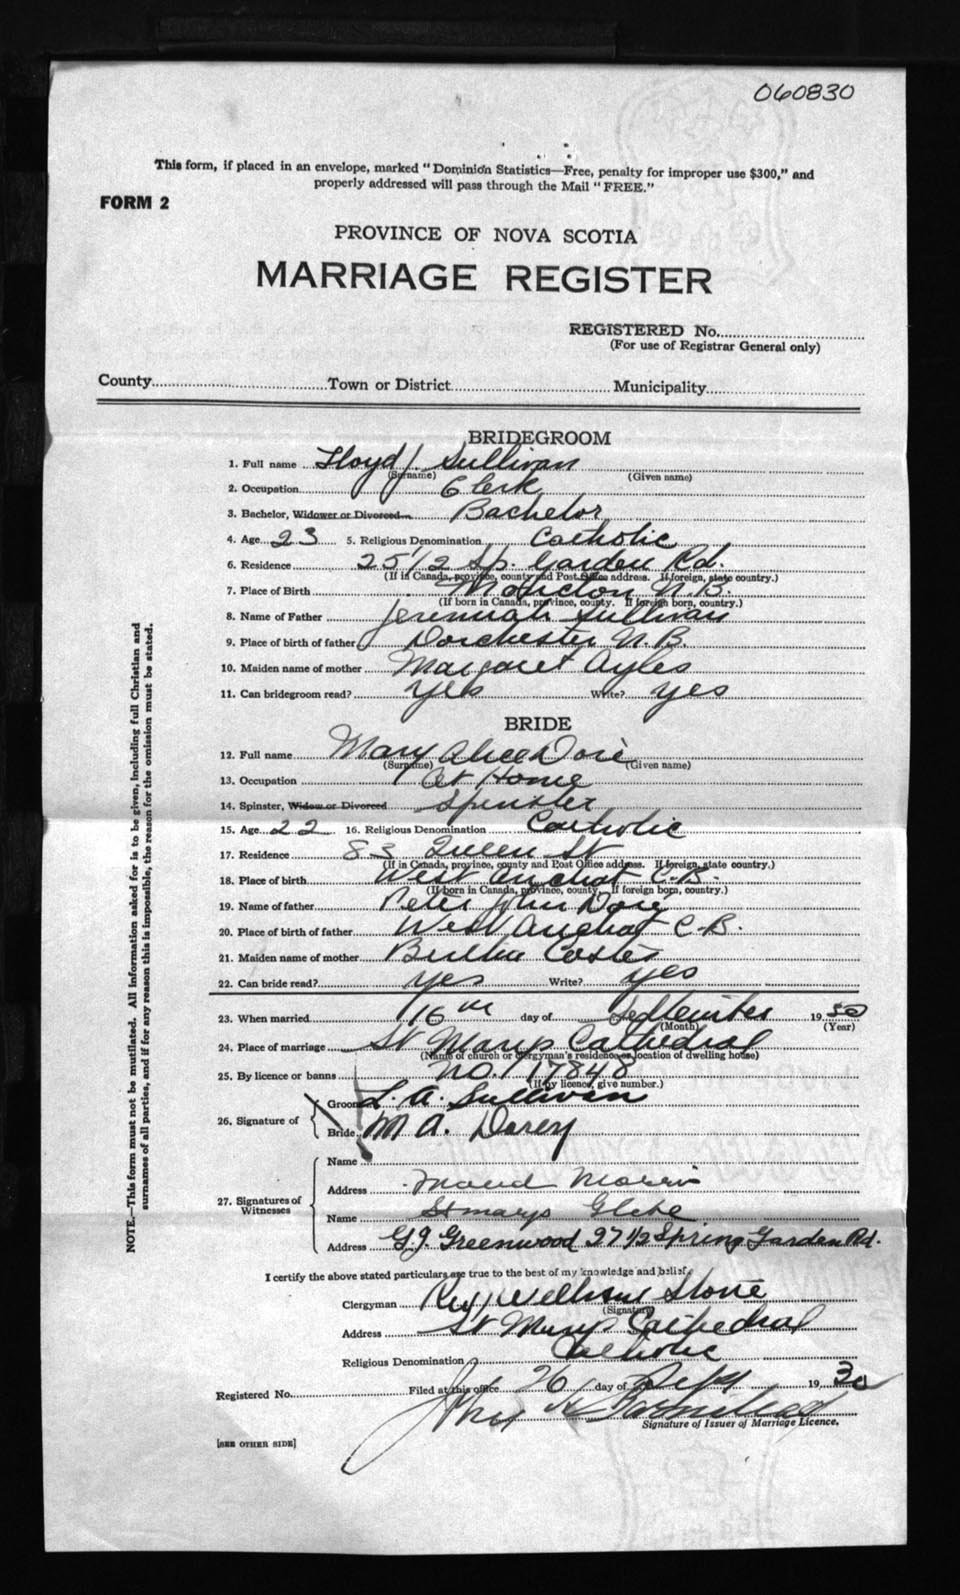 060830
This form, if placed in an envelope, marked "Dominion Statistics—Free, penalty for improper use $300," and
properly addressed will pass through the Mail "FREE."
FORM 2
PROVINCE OF NOVA SCOTIA
MARRIAGE REGISTER
REGISTERED No.
(For use of Registrar General only)
County Town or District Municipality
BRIDEGROOM
1. Full name Lloyd J. Sullivan
(Surname) (Given name)
2. Occupation Clerk
3. Bachelor, Widower or Divorced Bachelor
4. Age 23 5. Religious Denomination Catholic
6. Residence 25 1/2 Sp. Garden Rd.
(If in Canada, province, county and Post Office address. If foreign, state country.)
7. Place of Birth Moncton N.B.
(If born in Canada, province, county. If foreign born, country.)
8. Name of Father Jeremiah Sullivan
9. Place of birth of father Dorchester N.B.
10. Maiden name of mother Margaret Ayles
11. Can bridegroom read? yes Write? yes
BRIDE
12. Full name Mary Alice Doré
(Surname) (Given name)
13. Occupation At Home
14. Spinster, Widow or Divorced Spinster
15. Age 22 16. Religious Denomination Catholic
17. Residence 83 Queen St
(If in Canada, province, county and Post Office address. If foreign, state country.)
18. Place of birth West Arichat C.B.
(If born in Canada, province, county. If foreign born, country.)
19. Name of father Peter John Doré
20. Place of birth of father West Arichat C.B.
21. Maiden name of mother Bertha
22. Can bride read? yes Write? yes
23. When married 16th day of September 1930
(Month) (Year)
24. Place of marriage St Marys Cathedral
(Name of church or clergyman's residence or location of dwelling house)
25. By licence or banns No. 17848
(If by licence, give number.)
26. Signature of
Groom L. A. Sullivan
Bride M A. Dorey
27. Signatures of Witnesses
Name
Address Maud Morris
Name St marys Glebe
Address G.J. Greenwood 27 1/2 Spring Garden Rd.
I certify the above stated particulars are true to the best of my knowledge and belief.
Clergyman Rev William
(Signature)
Address St Marys Cathedral
Religious Denomination Catholic
Registered No. Filed at this office 26 day of Sept 1930
John
Signature of Issuer of Marriage Licence.
[SEE OTHER SIDE]
NOTE.—This form must not be mutilated. All information asked for is to be given, including full Christian and
surnames of all parties, and if for any reason this is impossible, the reason for the omission must be stated.